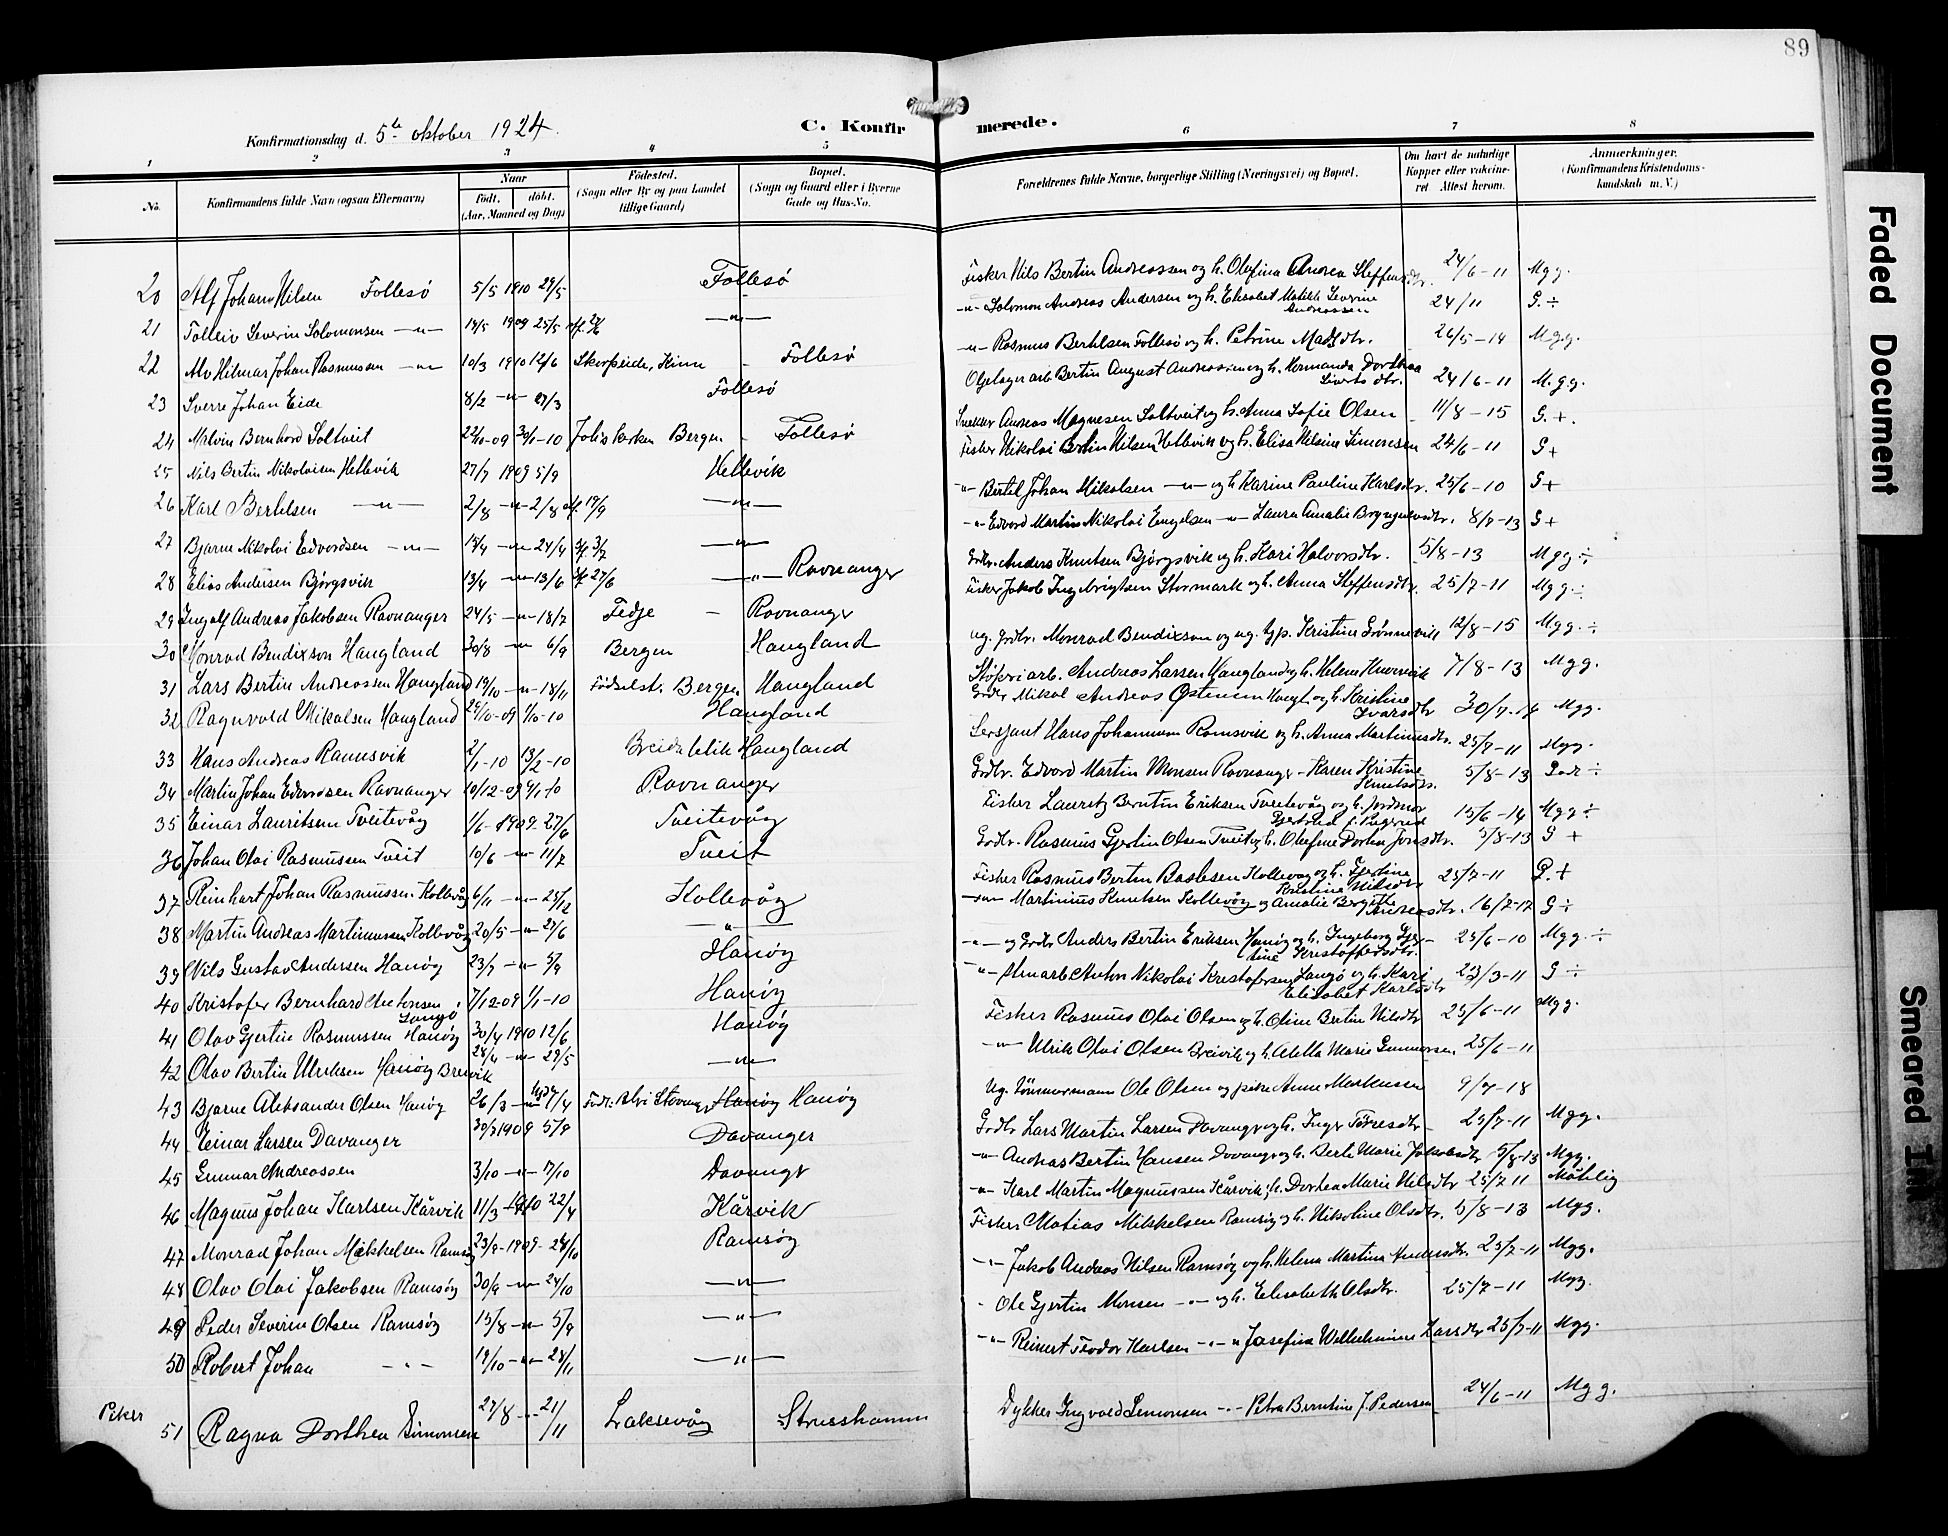 89
Konfirmationsdag d. 5te oktober 1924.
C. Konfirmerede.
1 2 3 4 5 6 7 8
No.
Konfirmandens fulde Navn (ogsaa Efternavn)
Naar født. døbt. (Aar, Maaned og Dag)
Fødested. (Sogn eller By og paa Landet tillige Gaard)
Bopæl. (Sogn og Gaard eller i Byerne Gade og Hus-No.
Forældrenes fulde Navne, borgerlige Stilling (Næringsvei) og Bopæl.
Om havt de naturlige Kopper eller vakcineret. Attest herom.
Anmærkninger. (Konfirmandens Kristendomskundskab m. V.)
20 Alf Johan Nilsen Follesø 5/5 1910 29/5 Follesø Fisker Nils Bertin Andreassen og h. Olefina Andrea Steffensdtr. 24/6-11 Mgg.
21 Tolleiv Severin Salomonsen -"- 19/5 1909 25/5 -"- -"- Salomon Andreas Andersen og h. Elisabet Matilh Severine Andreassen 24/11 G. ÷
22 Alv Hilmar Johan Rasmussen -"- 10/3 1910 12/6 Skorpeide, Kinn - Follesø -"- Rasmus Bertelsen Follesø og h. Petrine Madsdtr. 26/5-14 M.g.g.
23 Sverre Johan Eide 8/2 -"- 27/3 Follesø Oljelager arb. Bertin August Andreassen og h. Hermanda Dorthea Sivertsdtr. 24/6-11 M.g.g.
24 Melvin Bernhard Soltveit 22/11-09 Johs kirken Bergen - Follesø Snekker Andreas Magnesen Soltveit og h. Anna Sofie Olsen 11/8-15 G. +.
25 Nils Bertin Nikolaisen Hellevik 27/7 1909 5/9 Hellevik Fisker Nikolai Bertin Nilsen Hellevik og h. Elisa Nilsine Simonsen 24/6-11 G +
26 Karl Bertelsen -"- 2/8 -"- 2/8 19/9 -"- -"- Bertel Johan Mikalsen -"- og h. Karine Pauline Karlsdtr. 25/6-10 G +
27 Bjarne Nikolai Edvardsen -"- 15/4 -"- 24/4 3/7 -"- -"- Edvard Martin Nikolai Engelsen -"- Laura Amalie Brynjulvsdtr. 8/7-13 G +
28 Elias Andersen Bjørgsvik 13/4 -"- 13/6 27/6 -"- Ravnanger Grdbr. Anders Knutsen Bjørgsvik og h. Kari Halvorsdtr. 5/8-13 Mgg ÷
29 Ingolf Andreas Jakobsen Ravnanger 24/5 -"- 18/7 Fedje - Ravnanger Fisker Jakob Ingebrigtsen Stormark og h. Anna Steffensdtr. 25/7-11 Mgg. ÷
30 Monrad Bendixson Haugland 30/8 -"- 6/9 Bergen Haugland ug. grdbr. Monrad Bendixson og ug. tjp. Kristine Grønnevik 12/8-15 Mgg. ÷
31 Lars Bertin Andreassen Haugland 19/10 -"- 18/11 Fødselst. Bergen Haugland Støperiarb. Andreas Larsen Haugland og h. Helene 7/8-13 Mgg.
32 Ragnvald Mikalsen Haugland 1/10-10 Haugland Grdbr Mikal Andreas Østensen Haugl. og h. Kristine Ivarsdtr 30/7-14 Mgg.
33 Hans Andreas Ramsvik 2/1-10 13/2-10 Breidablik Haugland Sersjant Hans Johannson Ramsvik og h. Anna Martinusdtr. 25/7-11 Mgg.
34 Martin Johan Edvardsen Ravnanger 10/12-09 9/1-10 Ravnanger Grdbr. Edvard Martin Monsen Ravnanger - Karen Kristine Knutsdtr. 5/8-13 Godt ÷
35 Einar Lauritsen Tveitevåg 1/6-1909- 27/6 Tveitevåg Fisker Lauritz Berntin Eriksen Tveitevåg og h. jordmor Gjertrud f. 15/6-14 Mgg ÷
36 Johan Olai Rasmussen Tveit 10/6 -"- 11/7 Tveit Grdbr. Rasmus Gjertin Olsen Tveit og h. Olefine Dorthea Jonsdtr. 5/8-13 G +
37 Reinhart Johan Rasmussen Kollevåg 6/11 -"- 25/12 Kollevåg Fisker Rasmus Bertin Baslesen Kollevåg og h. Gjertine Kristine Nilsdtr 25/7-11 G. +
38 Martin Andreas Martinussen Kollevåg 20/5 -"- 27/6 -"- -"- Martinus Knutsen Kollevåg og Amalie Bergitte Andreasdtr. 16/7-17 G ÷
39 Nils Gustav Andersen Hanøy 23/7 -"- 5/9 Hanøy -"- og Grdbr Anders Bertin Eriksen Hanøy og h. Ingeborg Gjertine Kristoffersdtr. 25/6-10 Mgg. ÷
40 Kristofer Bernhard Antonsen Langø 7/12-09 1/1-10 Hanøy -"- Anton Nikolai Kristofersen Langø og h. Kari Elisabet Karlsdtr 23/3-11 G ÷
41 Olav Gjertin Rasmussen Hanøy 30/4 1910 12/6 Hanøy Fisker Rasmus Olai Olsen og h. Oline Bertin Nilsdtr 25/6-11 Mgg.
42 Olav Bertin Ulriksen Hanøy Breivik 28/4 -"- 29/5 -"- -"- Ulrik Olai Olsen Breivik og h. Aletta Marie Gunnarsen 25/6-11
43 Bjarne Aleksander Olsen Hanøy 26/3 -"- 7/4 Født: Stavanger Hanøy Hanøy Ug. tømmermann Ole Olsen og pike Anne Markussen 9/7-18
44 Einar Larsen Davanger 30/7 1909 5/9 Davanger Grdbr Lars Martin Larsen Davanger og h. Inger Torresdtr 25/7-11 Mgg.
45 Gunnar Andreassen 3/10 -"- 17/10 Davanger -"- Andreas Bertin Hansen Davanger og h. Berte Marie Jakobsdtr 5/8-13 Mgg.
46 Magnus Johan Karlsen Kårvik 11/3 -1910 22/4 Kårvik -"- Karl Martin Magnussen Kårvik, h. Dorthea Marie Nilsdtr 25/7 11 Måtelig
47 Monrad Johan Mikkelsen Ramsøy 23/9-1909- 24/10 Ramsøy Fisker Matias Mikkelsen Ramsøy og h. Nikoline Olsdtr. 5/8-13 Mgg.
48 Olav Olai Jakobsen Ramsøy 30/9 -"- 24/10 -"- -"- Jakob Andreas Nilsen Ramsøy og h. Helena Martina Andersdtr. 25/7-11 Mgg.
49 Peder Severin Olsen Ramsøy 15/8 -"- 5/9 -"- - Ole Gjertin Monsen -"- og h. Elisabeth Olsdtr. 25/7-11 Mgg.
50 Robert Johan -"- 19/10 -"- 28/11 -"- -"- Reinert Teodor Karlsen -"- Josefina Wilhelmine Larsdtr 25/7-11 Mgg.
Piker
51 Ragna Dorthea Simonsen 27/8 -"- 21/11 Laksevåg Strusshamn Dykker Ingvald Simonsen -"- Petra Berntine f. Pedersen 24/6-11 Mgg.
Faded Document
Smeared Ink